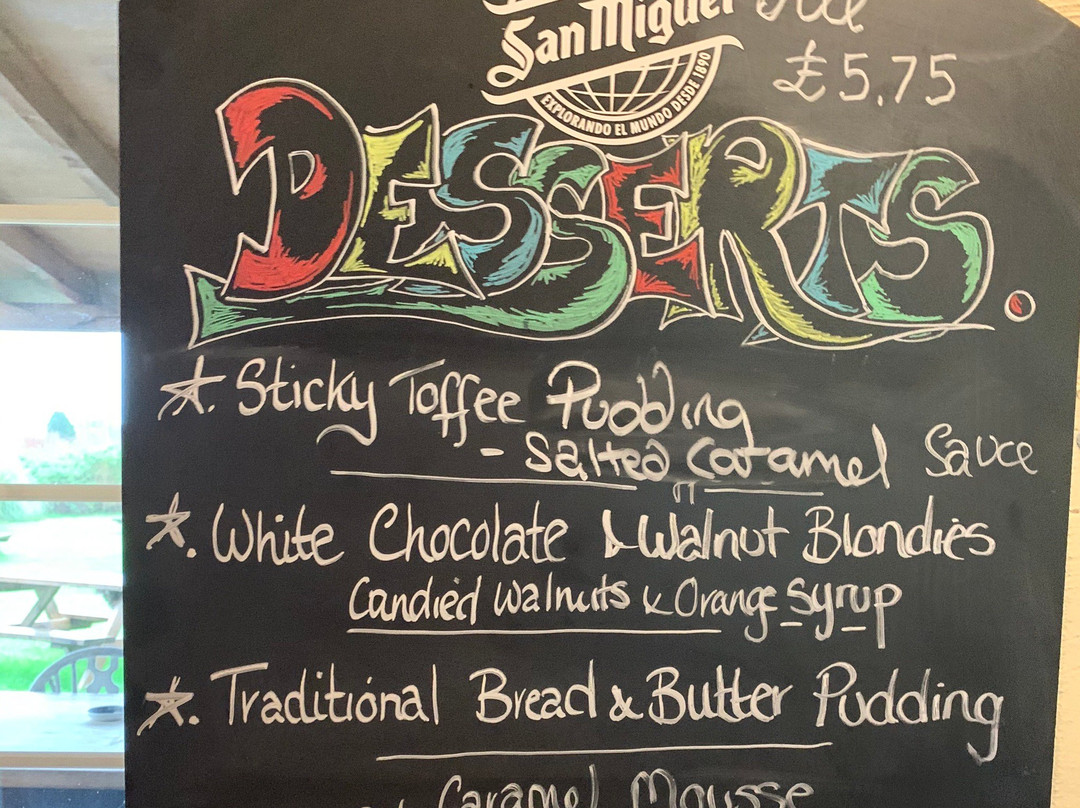 San Miguel
EXPLORANDO EL MUNDO DESDE 1890
£5.75
DESSERTS.
Sticky Toffee Pudding
- Salted Caramel Sauce
White Chocolate & Walnut Blondies
Candied Walnuts & Orange Syrup
Traditional Bread & Butter Pudding
Caramel Mousse